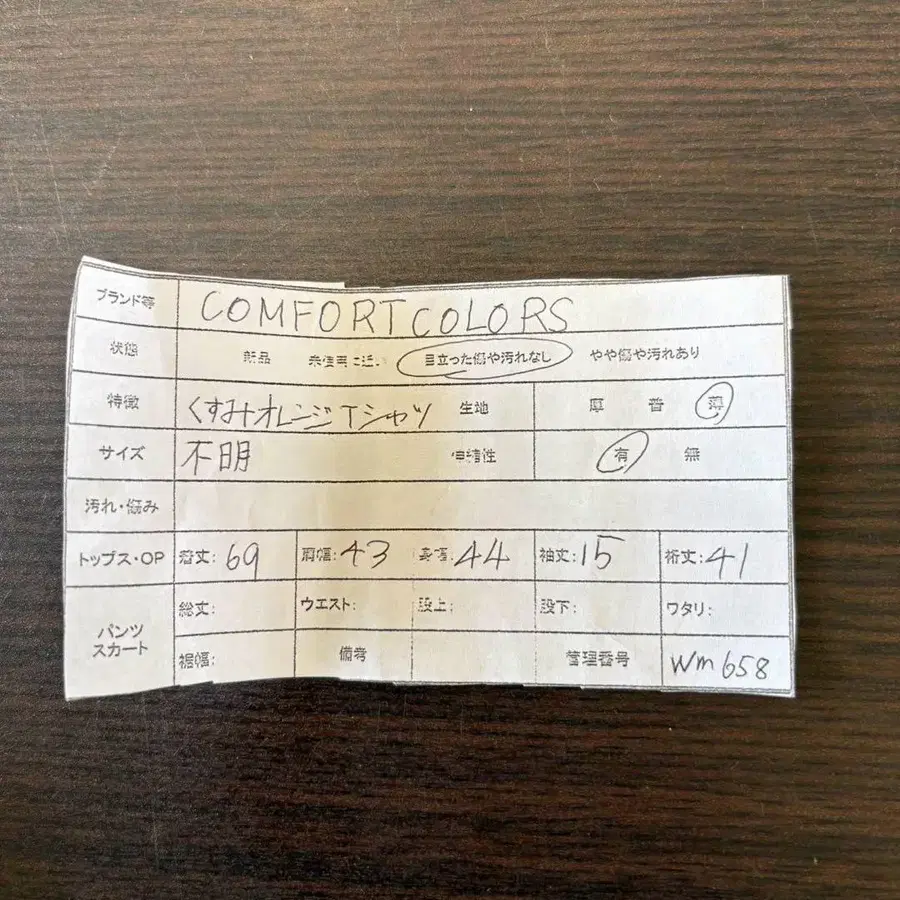 ブランド等 COMFORT COLORS
状態 新品 未使用に近い 目立った傷や汚れなし やや傷や汚れあり
特徴 くすみオレンジTシャツ 生地 厚 普 薄
サイズ 不明 伸縮性 有 無
汚れ・傷み
トップス・OP 着丈: 69 肩幅: 43 身幅: 44 袖丈: 15 裄丈: 41
パンツ スカート 総丈: ウエスト: 股上: 股下: ワタリ:
裾幅: 備考 管理番号 wm658